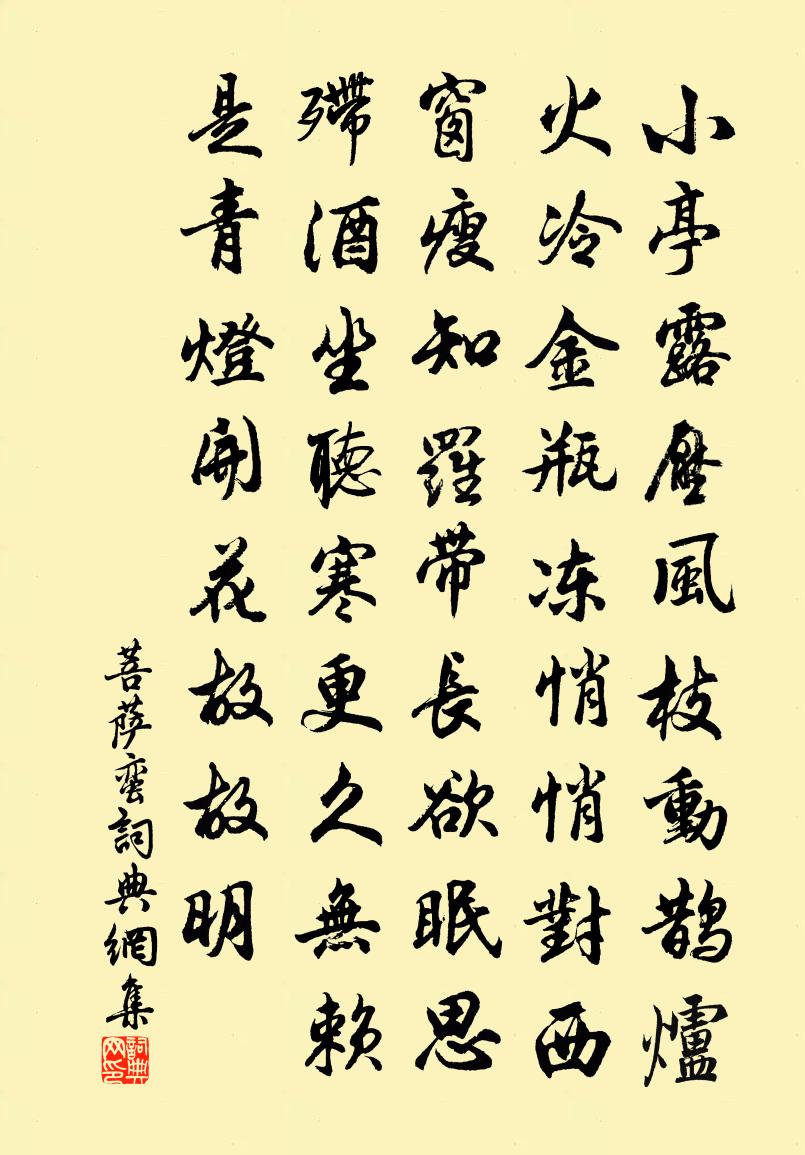 小亭露壓風枝動鵲爐
火冷金瓶凍悄悄對西
窗瘦知羅帶長欲眠思
殢酒坐聽寒更久無賴
是青燈開花故故明
菩萨蛮詞典網集
詞典网印